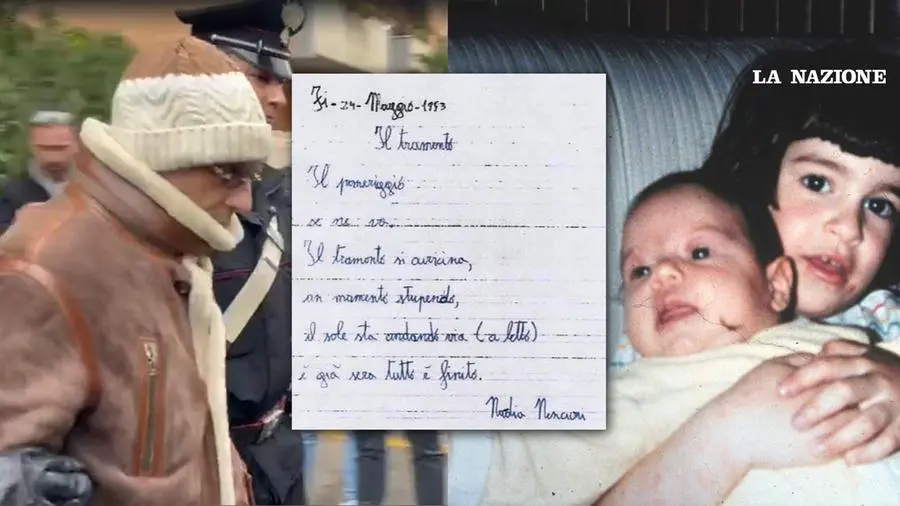 LA NAZIONE
Fi - 24 - Maggio - 1993
Il tramonto
Il pomeriggio
se ne va.
Il tramonto si avvicina,
un momento stupendo,
il sole sta andando via (a letto)
è già sera tutto è finito.
Nadia Nencioni